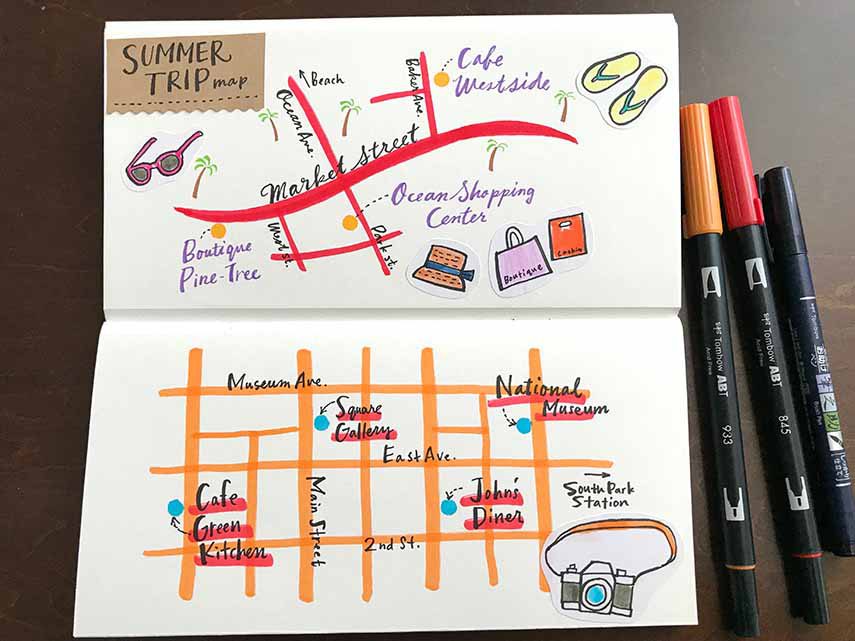 SUMMER
TRIP map
Beach
Ocean Ave.
Baker Ave.
Cafe
Westside
Market Street
Ocean Shopping
Center
Boutique
Pine-Tree
West St.
Park St.
Boutique
Museum Ave.
Square
Gallery
National
Museum
East Ave.
Cafe
Green
Kitchen
Main Street
John's
Diner
South Park
Station
2nd St.
Tombow ABT
Acid Free
933
Tombow ABT
Acid Free
845